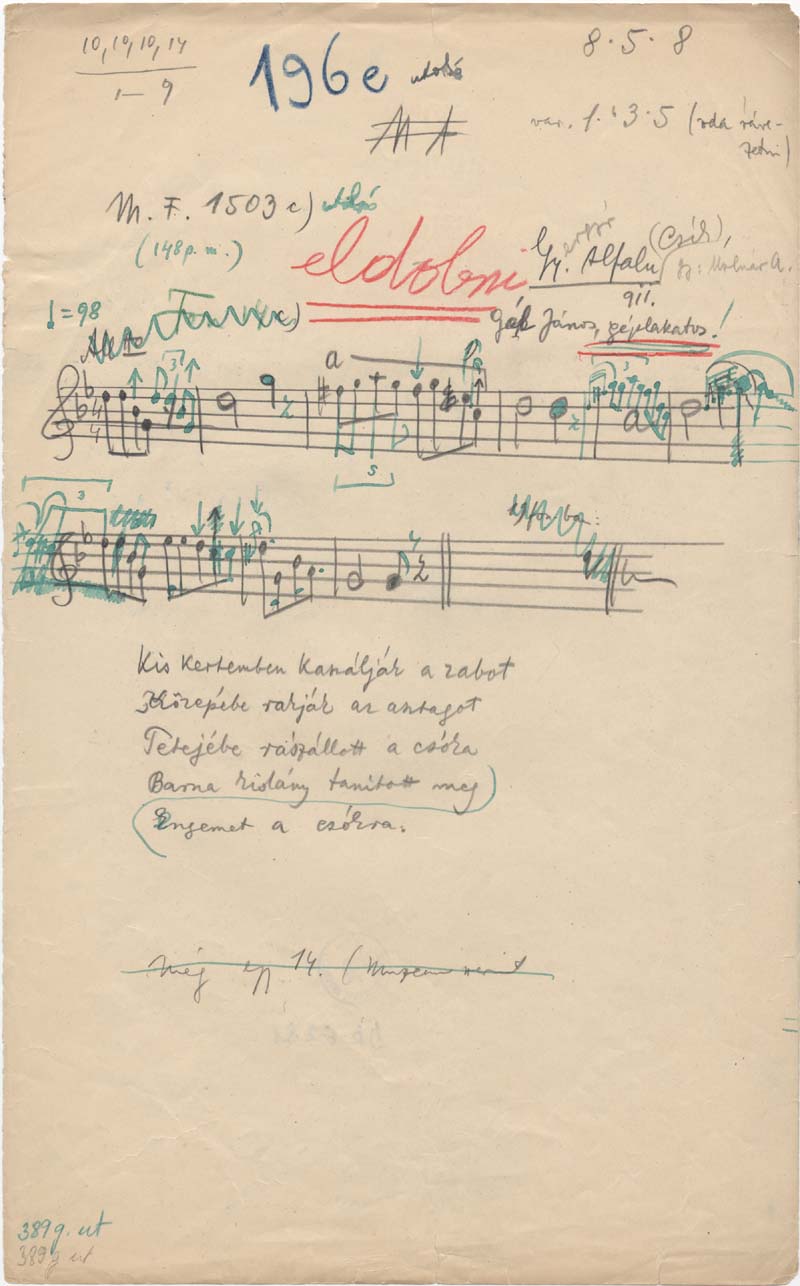 10, 10, 10, 14
1 — 9
196e utolsó
8 · 5 · 8
var. 1 · 3 · 5 (oda ráve-
zetni)
M. F. 1503 c) utolsó
(148 p. m.)
eldobni
Gy. Alfalu (Csík),
gy: Molnár A.
911.
Gál János, géplakatos!
♩ = 98
c)
3
a
3
a
5
3
Kis kertemben kaszálják a zabot
Közepébe rakják az asztagot
Tetejébe rászállott a csóka
Barna kislány tanított meg
Engemet a csókra.
Még egy 14. (
389 g. ut
389 g ut